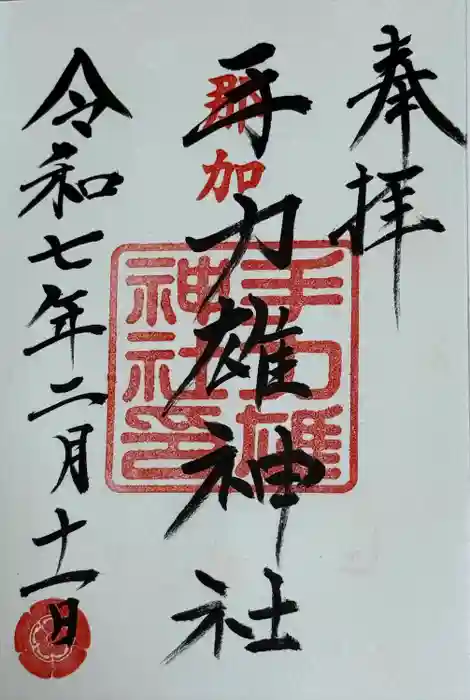 奉拝
那加
手力雄神社
手力雄神社印
令和七年二月十一日